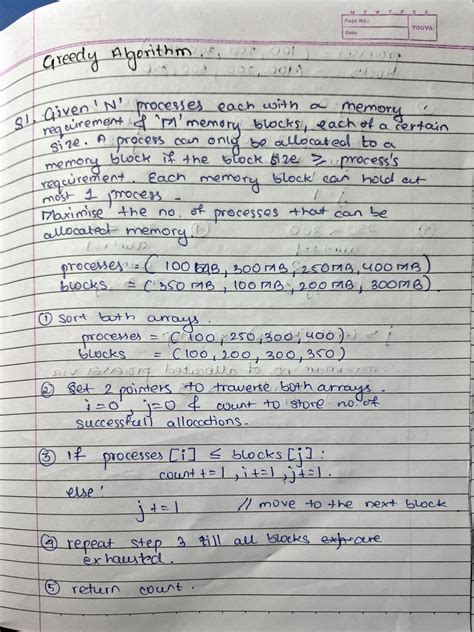 M T W T F S S
Page No.:
Date:
YOUVA
Greedy Algorithm
S1. Given 'N' processes each with a memory
requirement & 'M' memory blocks, each of a certain
size. A process can only be allocated to a
memory block if the block size ≥ process's
requirement. Each memory block can hold at
most 1 process.
Maximise the no. of processes that can be
allocated memory.
processes = (100 MB, 300 MB, 250 MB, 400 MB)
blocks = (350 MB, 100 MB, 200 MB, 300 MB).
① Sort both arrays.
processes = (100, 250, 300, 400)
blocks = (100, 200, 300, 350)
② Set 2 pointers to traverse both arrays.
i=0, j=0 & count to store no. of
successfull allocations.
③ If processes [i] ≤ blocks [j] :
count += 1, i += 1, j += 1.
else :
j += 1 // move to the next block
④ repeat step 3 till all blocks are
exhausted.
⑤ return count.